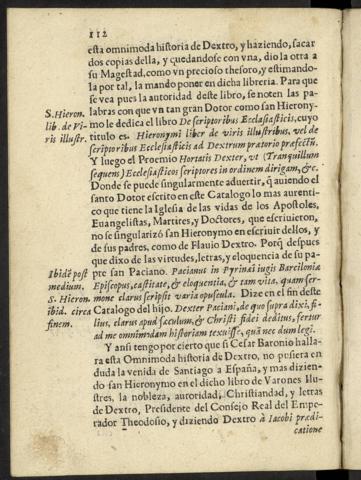 112
esta omnimoda historia de Dextro, y haziendo, sacar
dos copias della, y quedandose con vna, dio la otra a
su Magestad, como vn precioso thesoro, y estimando-
la por tal, la mandó poner en dicha libreria. Para que
se vea pues la autoridad deste libro, se noten las pa-
S. Hieron. labras con que vn tan gran Dotor como san Hierony-
lib. de Vi- mo le dedica el libro De scriptoribus Ecclesiasticis, cuyo
ris illustr. titulo es. Hieronymi liber de viris illustribus, vel de
scriptoribus Ecclesiasticis ad Dextrum pratorio præfectũ.
Y luego el Proemio Hortatis Dexter, vt (Tranquillum
sequem) Ecclesiasticos scriptores in ordinem dirigam, &c.
Donde se puede singularmente aduertir, q̃ auiendo el
santo Dotor escrito en este Catalogo lo mas autenti-
co que tiene la Iglesia de las vidas de los Apostoles,
Euangelistas, Martires, y Doctores, que escriuieron,
no se singularizó san Hieronymo en escriuir dellos, y
de sus padres, como de Flauio Dextro. Porq̃ despues
que dixo de las virtudes, letras, y eloquencia de su pa-
Ibidẽ post pre san Paciano. Pacianus in Pyrinæi iugis Barcilonia
medium. Episcopus, castitate, & eloquentia, & tam vita, quam ser-
S. Hieron. mone clarus scripsit varia opuscula. Dize en el fin deste
ibid. circa Catalogo del hijo. Dexter Paciani, de quo supra dixi, fi-
finem. lius, clarus apud sæculum, & Christi fidei deditus, fertur
ad me omnimodam historiam texuisse, quã nec dum legi.
Y ansi tengo por cierto que si Cesar Baronio halla-
ra esta Omnimoda historia de Dextro, no pusiera en
duda la venida de Santiago a España, y mas dizien-
do san Hieronymo en el dicho libro de Varones Ilu-
stres, la nobleza, autoridad, Christiandad, y letras
de Dextro, Presidente del Consejo Real del Empe-
rador Theodosio, y diziendo Dextro à Iacobi prædi-
catione